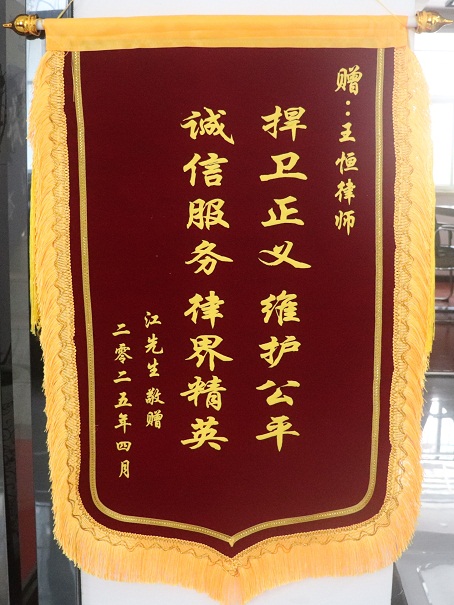 赠：王恒律师
捍卫正义 维护公平
诚信服务 律界精英
江先生敬赠
二零二五年四月